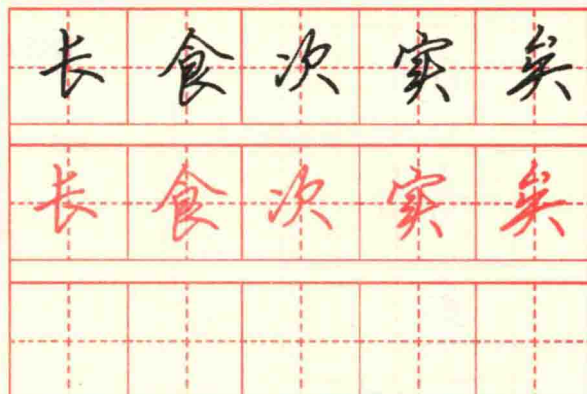 长食次实矣
长食次实矣